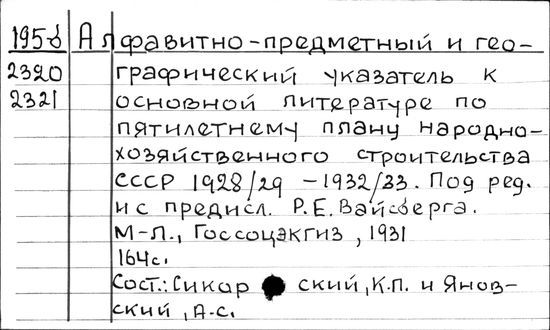 1958 Алфавитно-предметный и гео-
2320 графический указатель к
2321 основной литературе по
пятилетнему плану народно-
хозяйственного строительства
СССР 1928/29 - 1932/33. Под ред.
и с предисл. Р.Е. Вайсберга.
М-Л., Госсоцэкгиз, 1931
164с.
Сост.: Сикор ский, К.П. и Янов-
ский, А.С.